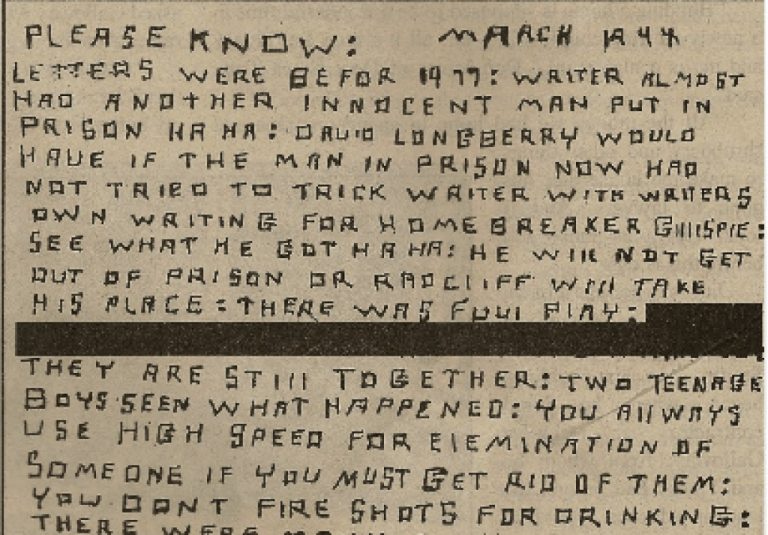 PLEASE KNOW: MARCH 1944
LETTERS WERE BEFOR 1977: WRITER ALMOST
HAD ANOTHER INNOCENT MAN PUT IN
PRISON HA HA: DAVID LONGBERRY WOULD
HAVE IF THE MAN IN PRISON NOW HAD
NOT TRIED TO TRICK WRITER WITH WRITERS
OWN WRITING FOR HOMEBREAKER GIIISPIE:
SEE WHAT HE GOT HA HA: HE WIII NOT GET
OUT OF PRISON OR RADCLIFF WIII TAKE
HIS PLACE: THERE WAS FOUI PIAY:
THEY ARE STIII TOGETHER: TWO TEENAGE
BOYS SEEN WHAT HAPPENED: YOU AIIWAYS
USE HIGH SPEED FOR EIEMINATION OF
SOMEONE IF YOU MUST GET RID OF THEM:
YOU DONT FIRE SHOTS FOR DRINKING:
THERE WERE